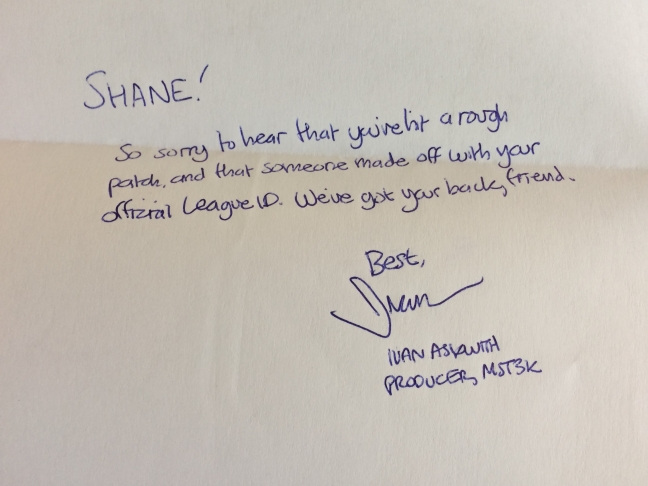 SHANE!
So sorry to hear that you've hit a rough
patch, and that someone made off with your
official League ID. We've got your back, friend.
Best,
Ivan
IVAN ASKWITH
PRODUCER, MST3K